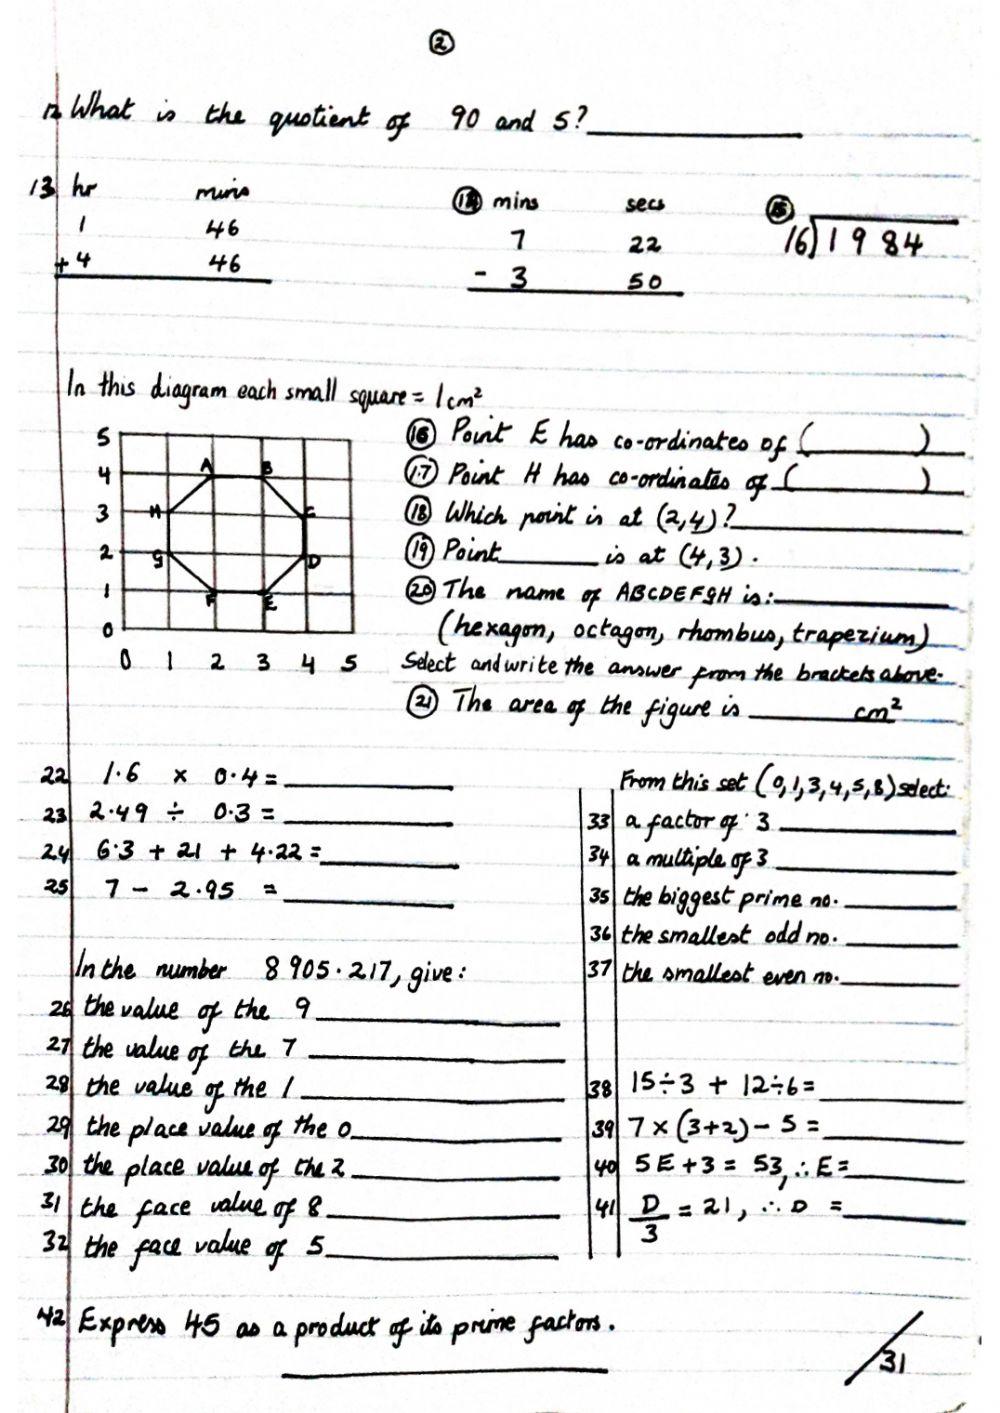 2
12 What is the quotient of 90 and 5?
13 hr mins
1 46
+ 4 46
14 mins secs
7 22
- 3 50
15
16)1984
In this diagram each small square = 1cm²
5
4
3
2
1
0
0 1 2 3 4 5
A B
H C
G D
F E
16 Point E has co-ordinates of ( )
17 Point H has co-ordinates of ( )
18 Which point is at (2,4)?
19 Point is at (4,3).
20 The name of ABCDEFGH is:
(hexagon, octagon, rhombus, trapezium)
Select and write the answer from the brackets above.
21 The area of the figure is cm²
22 1.6 x 0.4 =
23 2.49 ÷ 0.3 =
24 6.3 + 21 + 4.22 =
25 7 - 2.95 =
In the number 8905.217, give:
26 the value of the 9
27 the value of the 7
28 the value of the 1
29 the place value of the 0
30 the place value of the 2
31 the face value of 8
32 the face value of 5
From this set (0,1,3,4,5,8) select:
33 a factor of 3
34 a multiple of 3
35 the biggest prime no.
36 the smallest odd no.
37 the smallest even no.
38 15÷3 + 12÷6 =
39 7 x (3+2) - 5 =
40 5E + 3 = 53, ∴ E =
41 D/3 = 21, ∴ D =
42 Express 45 as a product of its prime factors.
/31